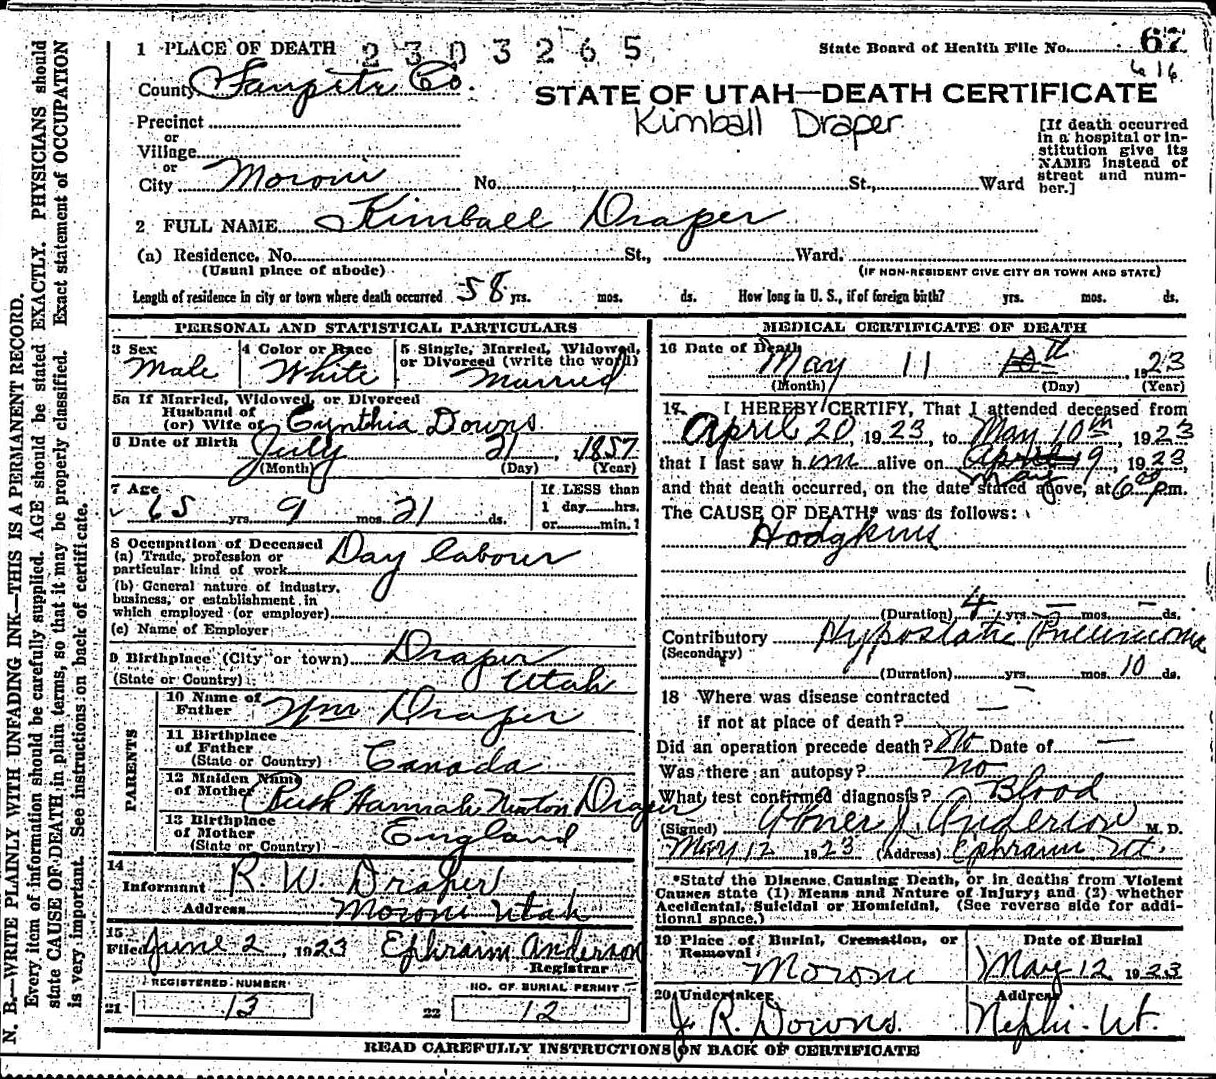 1 PLACE OF DEATH 2303265 State Board of Health File No. 67
616
County Sanpete Co.
STATE OF UTAH—DEATH CERTIFICATE
Kimball Draper
Precinct
or
Village
or
City Moroni No. St., Ward
[If death occurred
in a hospital or in-
stitution give its
NAME instead of
street and num-
ber.]
2 FULL NAME Kimball Draper
(a) Residence. No. St., Ward.
(Usual place of abode) (IF NON-RESIDENT GIVE CITY OR TOWN AND STATE)
Length of residence in city or town where death occurred 58 yrs. mos. ds. How long in U. S., if of foreign birth? yrs. mos. ds.
PERSONAL AND STATISTICAL PARTICULARS
3 Sex
Male
4 Color or Race
White
5 Single, Married, Widowed,
or Divorced (write the word)
Married
5a If Married, Widowed, or Divorced
Husband of
(or) Wife of Cynthia Downs
6 Date of Birth July 21, 1857
(Month) (Day) (Year)
7 Age
65 yrs. 9 mos. 21 ds.
If LESS than
1 day hrs.
or min.?
8 Occupation of Deceased
(a) Trade, profession or
particular kind of work Day labour
(b) General nature of industry,
business, or establishment in
which employed (or employer)
(c) Name of Employer
9 Birthplace (City or town) Draper
(State or Country) Utah
PARENTS
10 Name of
Father Wm Draper
11 Birthplace
of Father
(State or Country) Canada
12 Maiden Name
of Mother Ruth Hannah Newton Draper
13 Birthplace
of Mother
(State or Country) England
14
Informant R. W. Draper
Address Moroni Utah
15
Filed June 2, 1923 Ephraim Anderson
Registrar
REGISTERED NUMBER
21 13
NO. OF BURIAL PERMIT
22 12
MEDICAL CERTIFICATE OF DEATH
16 Date of Death
May 11 10th, 1923
(Month) (Day) (Year)
17. I HEREBY CERTIFY, That I attended deceased from
April 20, 1923, to May 10th, 1923
that I last saw him alive on April 19, 1923
May
and that death occurred, on the date stated above, at 6 pm.
The CAUSE OF DEATH* was as follows:
Hodgkins
(Duration) 4 yrs. — mos. — ds.
Contributory Hypostatic Pneumonia
(Secondary)
(Duration) yrs. mos. 10 ds.
18 Where was disease contracted —
if not at place of death? —
Did an operation precede death? No Date of —
Was there an autopsy? No
What test confirmed diagnosis? Blood
(Signed) Abner J. Anderson M. D.
May 12 1923 (Address) Ephraim Ut.
*State the Disease Causing Death, or in deaths from Violent
Causes state (1) Means and Nature of Injury; and (2) whether
Accidental, Suicidal or Homicidal. (See reverse side for addi-
tional space.)
19 Place of Burial, Cremation, or
Removal
Moroni
Date of Burial
May 12 1923
20 Undertaker
J. R. Downs.
Address
Nephi-Ut.
READ CAREFULLY INSTRUCTIONS ON BACK OF CERTIFICATE
N. B.—WRITE PLAINLY WITH UNFADING INK—THIS IS A PERMANENT RECORD.
Every item of information should be carefully supplied. AGE should be stated EXACTLY. PHYSICIANS should
state CAUSE OF DEATH in plain terms, so that it may be properly classified. Exact statement of OCCUPATION
is very important. See instructions on back of certificate.